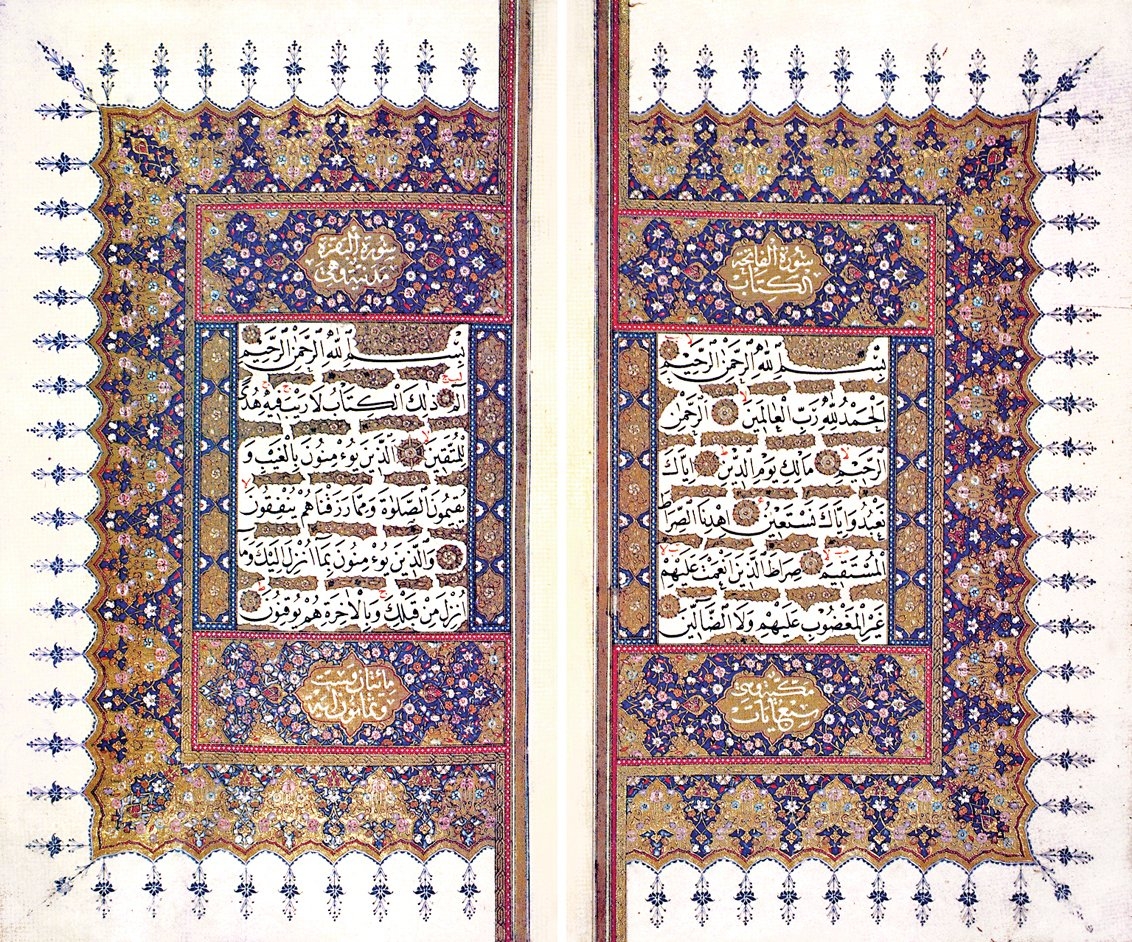 سورة الفاتحة
الكتاب
بسم الله الرحمن الرحيم
الحمد لله رب العالمين الرحمن
الرحيم مالك يوم الدين اياك
نعبد واياك نستعين اهدنا الصراط
المستقيم صراط الذين انعمت عليهم
غير المغضوب عليهم ولا الضالين
مكية وهي
سبع آيات
سورة البقرة
مدنية وهي
بسم الله الرحمن الرحيم
الم ذلك الكتاب لا ريب فيه هدى
للمتقين الذين يؤمنون بالغيب و
يقيمون الصلوة ومما رزقناهم ينفقون
والذين يؤمنون بما انزل اليك وما
انزل من قبلك وبالاخرة هم يوقنون
مائتان وست
وثمانون آية